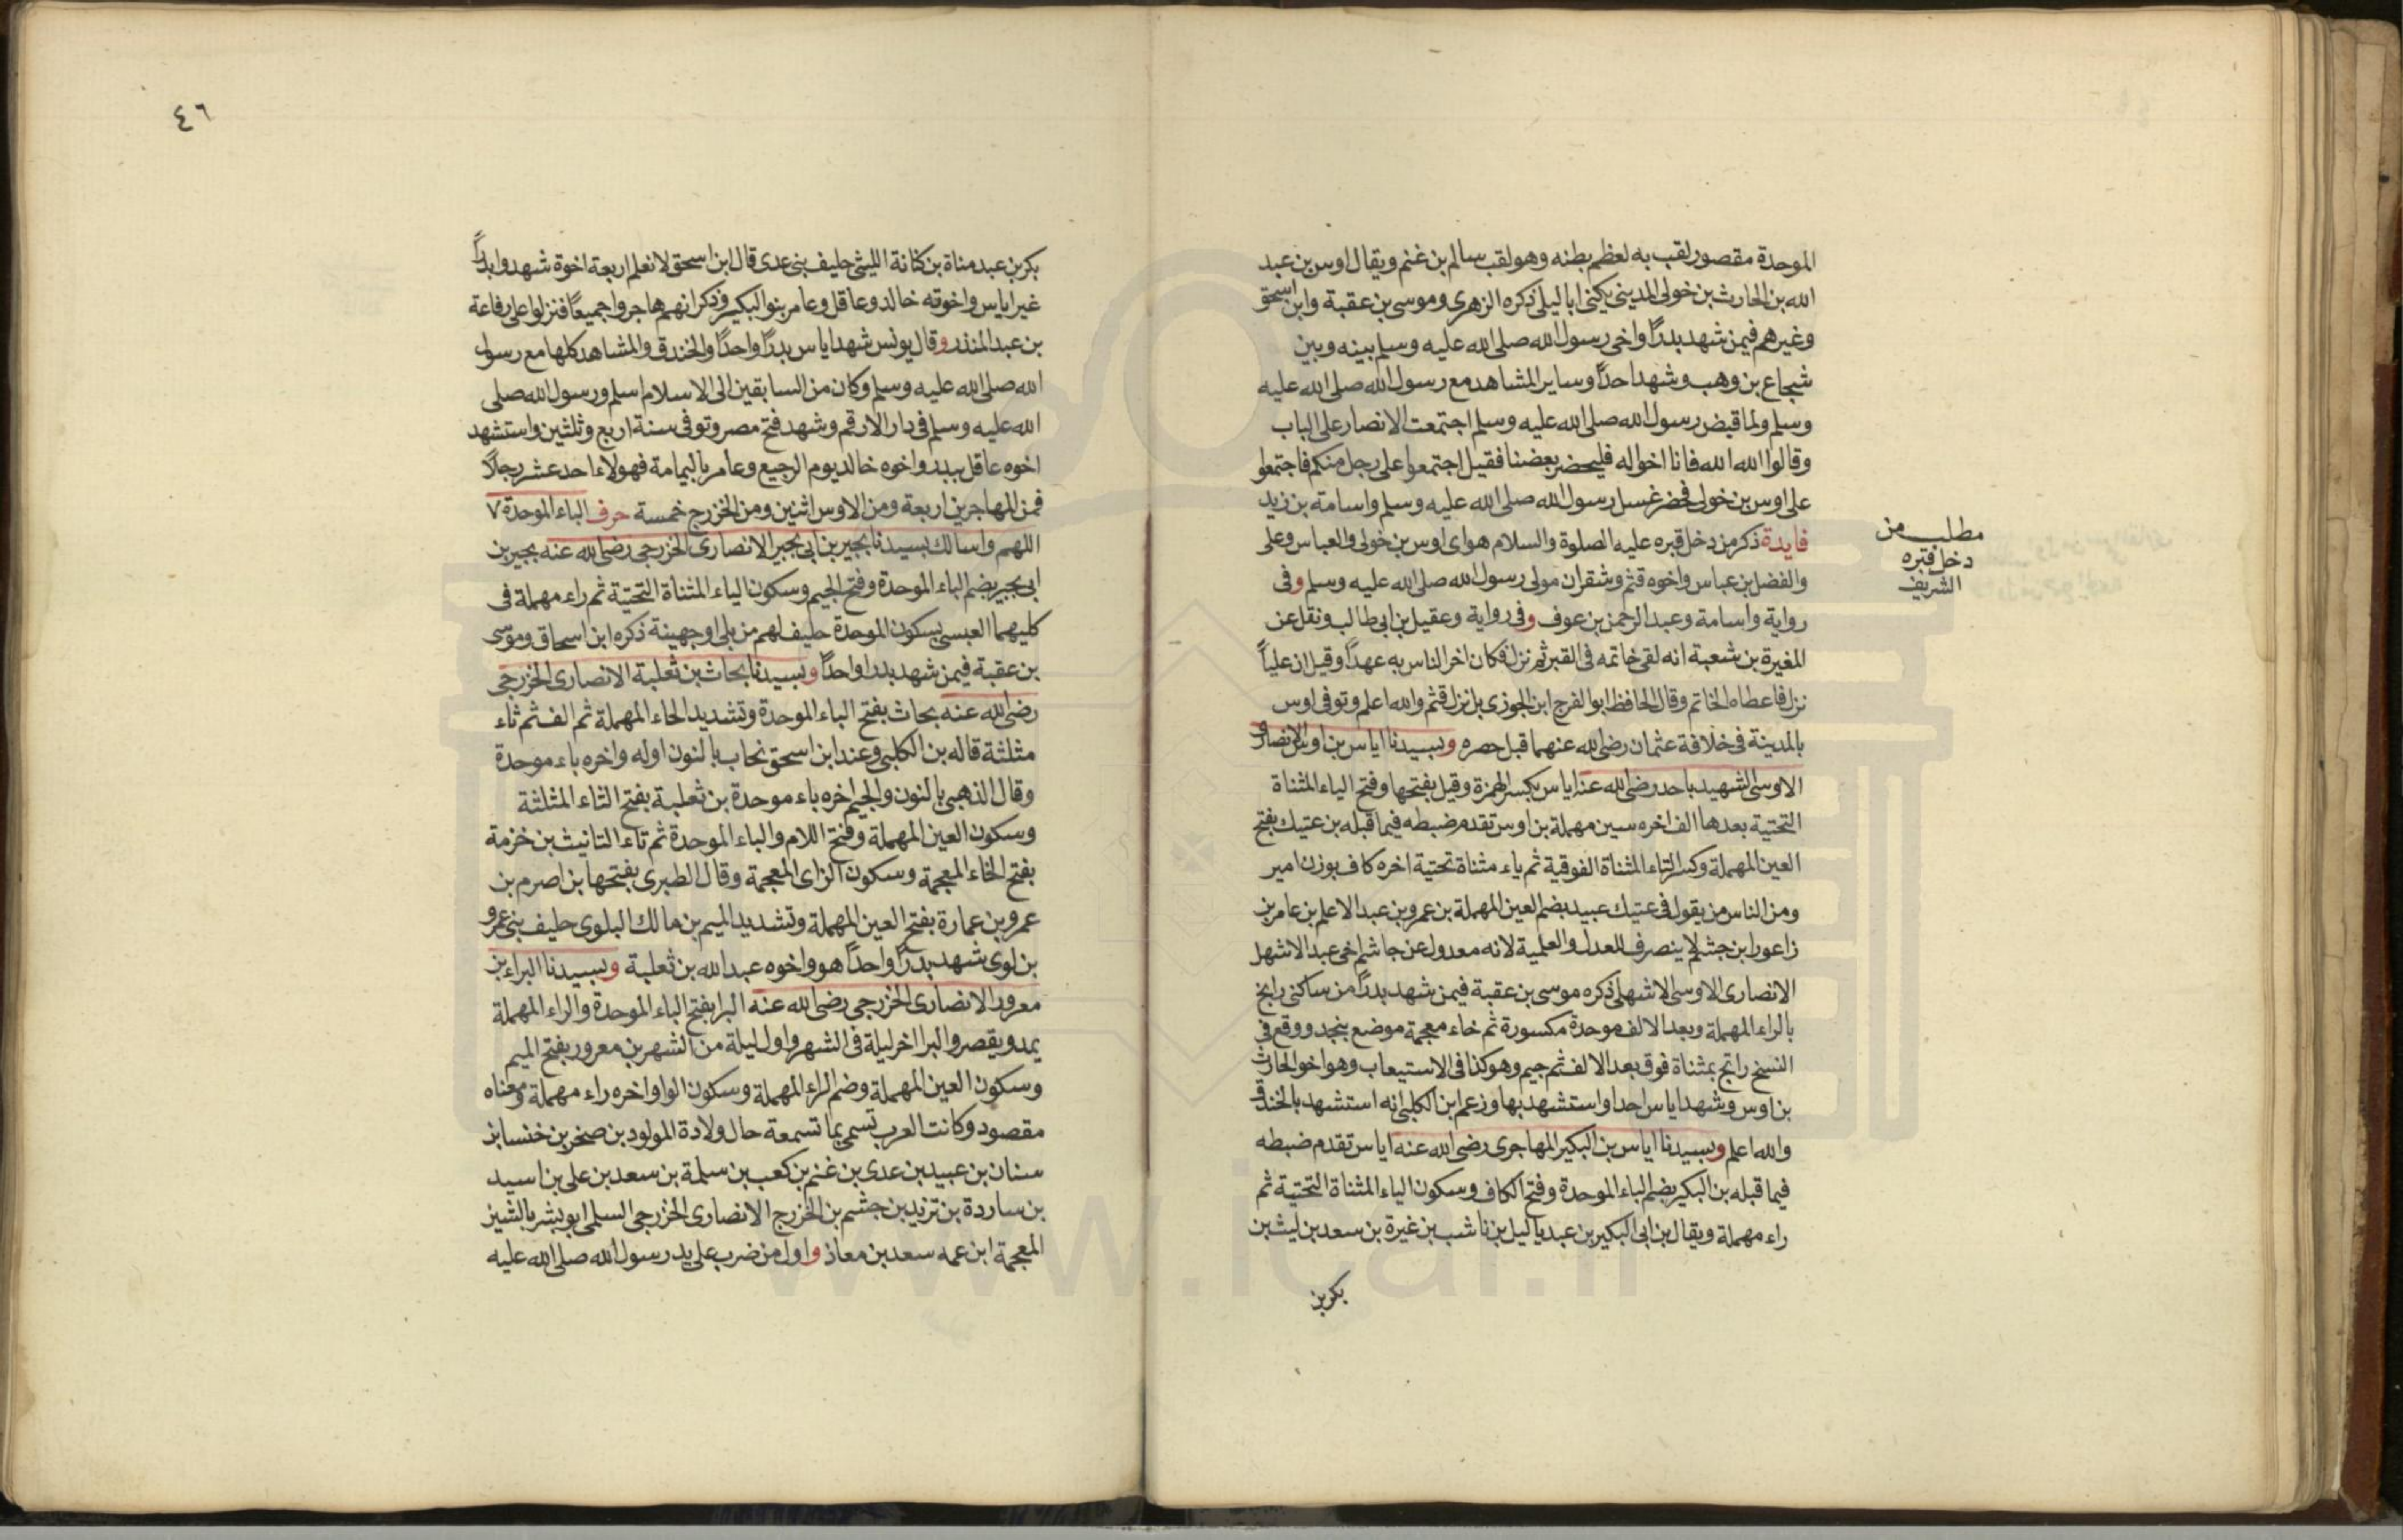 الموحدة مقصور لقب به لعظم بطنه وهو لقب سالم بن غنم ويقال اوس بن عبد
الله بن الحارث بن خولى المدينى يكنى ابا ليلى ذكره الزهرى وموسى بن عقبة وابن اسحق
وغيرهم فيمن شهد بدرًا واخى رسول الله صلى الله عليه وسلم بينه وبين
شجاع بن وهب وشهد احدًا وساير المشاهد مع رسول الله صلى الله عليه
وسلم ولما قبض رسول الله صلى الله عليه وسلم اجتمعت الانصار على الباب
وقالوا الله الله فانا اخواله فليحضر بعضنا فقيل اجتمعوا على رجل منكم فاجتمعوا
على اوس بن خولى فحضر غسل رسول الله صلى الله عليه وسلم واسامة بن زيد
فايدة ذكر من دخل قبره عليه الصلوة والسلام هو اى اوس بن خولى والعباس وعلى
والفضل بن عباس واخوه قثم وشقران مولى رسول الله صلى الله عليه وسلم وفى
رواية واسامة وعبد الرحمن بن عوف وفى رواية وعقيل بن ابى طالب ونقل عن
المغيرة بن شعبة انه لقى خاتمه فى القبر ثم نزل فكان اخر الناس به عهدًا وقيل ان عليًا
نزل فاعطاه الخاتم وقال الحافظ ابو الفرج ابن الجوزى بل نزل قثم والله اعلم وتوفى اوس
بالمدينة فى خلافة عثمان رضى الله عنهما قبل حصره وبسيدنا اياس بن اوس الانصارى
الاوسى الشهيد باحد رضى الله عنه اياس بكسر الهمزة وقيل بفتحها وفتح الياء المثناة
التحتية بعدها الف اخره سين مهملة بن اوس تقدم ضبطه فيما قبله بن عتيك بفتح
العين المهملة وكسر التاء المثناة الفوقية ثم ياء مثناة تحتية اخره كاف بوزن امير
ومن الناس من يقول فى عتيك عبيد بضم العين المهملة بن عمرو بن عبد الاعلم بن عامر بن
زاعورا بن جشم لا ينصرف للعدل والعلمية لانه معدول عن جاشم اخى عبد الاشهل
الانصارى الاوسى الاشهلى ذكره موسى بن عقبة فيمن شهد بدرًا من ساكنى رابخ
بالراء المهملة وبعد الالف موحدة مكسورة ثم خاء معجمة موضع بنجد ووقع فى
النسخ راتج بمثناة فوق بعد الالف ثم جيم وهو كذا فى الاستيعاب وهو اخو الحارث
بن اوس وشهد اياس احدا واستشهد بها وزعم ابن الكلبى انه استشهد بالخندق
والله اعلم وبسيدنا اياس بن البكير المهاجرى رضى الله عنه اياس تقدم ضبطه
فيما قبله بن البكير بضم الباء الموحدة وفتح الكاف وسكون الياء المثناة التحتية ثم
راء مهملة ويقال بن ابى البكير بن عبد ياليل بن ناشب بن غيرة بن سعد بن ليث بن
بكر بن
مطلب من
دخل قبره
الشريف
٤٦
بكر بن عبد مناة بن كنانة الليثى حليف بنى عدى قال ابن اسحق لا نعلم اربعة اخوة شهدوا بدرًا
غير اياس واخوته خالد وعاقل وعامر بنو البكير وذكر انهم هاجروا جميعًا فنزلوا على رفاعة
بن عبد المنذر وقال يونس شهد اياس بدرًا واحدًا والخندق والمشاهد كلها مع رسول
الله صلى الله عليه وسلم وكان من السابقين الى الاسلام اسلم ورسول الله صلى
الله عليه وسلم فى دار الارقم وشهد فتح مصر وتوفى سنة اربع وثلثين واستشهد
اخوه عاقل ببدر واخوه خالد يوم الرجيع وعامر باليمامة فهولاء احد عشر رجلًا
فمن المهاجرين اربعة ومن الاوس اثنين ومن الخزرج خمسة حرف الباء الموحدة ٧
اللهم واسالك بسيدنا بجير بن ابى بجير الانصارى الخزرجى رضى الله عنه بجير بن
ابى بجير بضم الباء الموحدة وفتح الجيم وسكون الياء المثناة التحتية ثم راء مهملة فى
كليهما العبسى بسكون الموحدة حليف لهم من بلى او جهينة ذكره ابن اسحاق وموسى
بن عقبة فيمن شهد بدرا واحدًا وبسيدنا بحاث بن ثعلبة الانصارى الخزرجى
رضى الله عنه بحاث بفتح الباء الموحدة وتشديد الحاء المهملة ثم الف ثم ثاء
مثلثة قاله بن الكلبى وعند ابن اسحق نحاب بالنون اوله واخره باء موحدة
وقال الذهبى بالنون والجيم اخره باء موحدة بن ثعلبة بفتح الثاء المثلثة
وسكون العين المهملة وفتح اللام والباء الموحدة ثم تاء التانيث بن خزمة
بفتح الخاء المعجمة وسكون الزاى المعجمة وقال الطبرى بفتحها بن اصرم بن
عمرو بن عمارة بفتح العين المهملة وتشديد الميم بن مالك البلوى حليف بنى عمرو
بن لوى شهد بدرًا واحدًا هو واخوه عبد الله بن ثعلبة وبسيدنا البراء بن
معرور الانصارى الخزرجى رضى الله عنه البرا بفتح الباء الموحدة والراء المهملة
يمد ويقصر والبرا اخر ليلة فى الشهر واول ليلة من الشهر بن معرور بفتح الميم
وسكون العين المهملة وضم الراء المهملة وسكون الواو اخره راء مهملة ومعناه
مقصود وكانت العرب تسمى بما تسمعه حال ولادة المولود بن صخر بن خنسا بن
سنان بن عبيد بن عدى بن غنم بن كعب بن سلمة بن سعد بن على بن اسيد
بن ساردة بن تزيد بن جشم بن الخزرج الانصارى الخزرجى السلمى ابو بشر بالشين
المعجمة ابن عمه سعد بن معاذ واول من ضرب على يد رسول الله صلى الله عليه